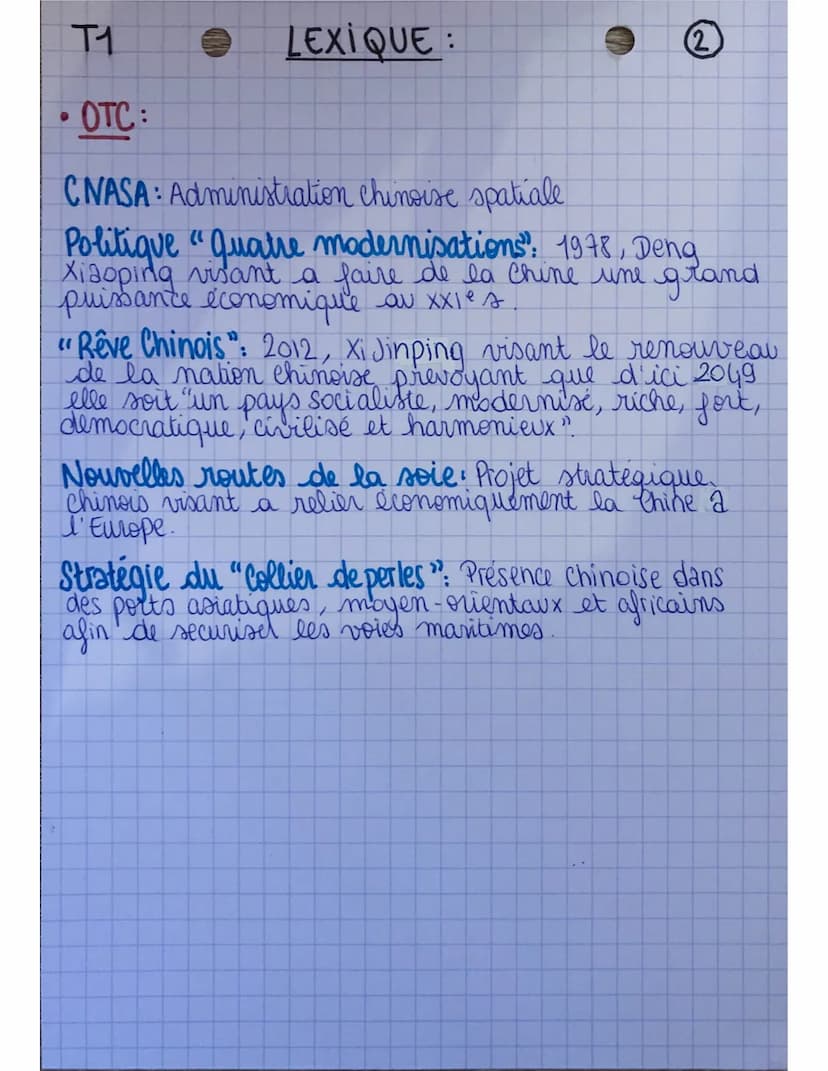 T1 LEXIQUE : 2
• OTC :
CNASA : Administration chinoise spatiale
Politique "Quatre modernisations" : 1978, Deng
Xiaoping visant a faire de la Chine une grand
puissance économique au XXIe s.
"Rêve Chinois" : 2012, Xi Jinping visant le renouveau
de la nation chinoise prevoyant que d'ici 2049
elle soit "un pays socialiste, modernisé, riche, fort,
démocratique, civilisé et harmonieux".
Nouvelles routes de la soie : Projet stratégique
chinois visant a relier économiquement la Chine à
l'Europe.
Stratégie du "Collier de perles" : Présence chinoise dans
des ports asiatiques, moyen-orientaux et africains
afin de securiser les voies maritimes.